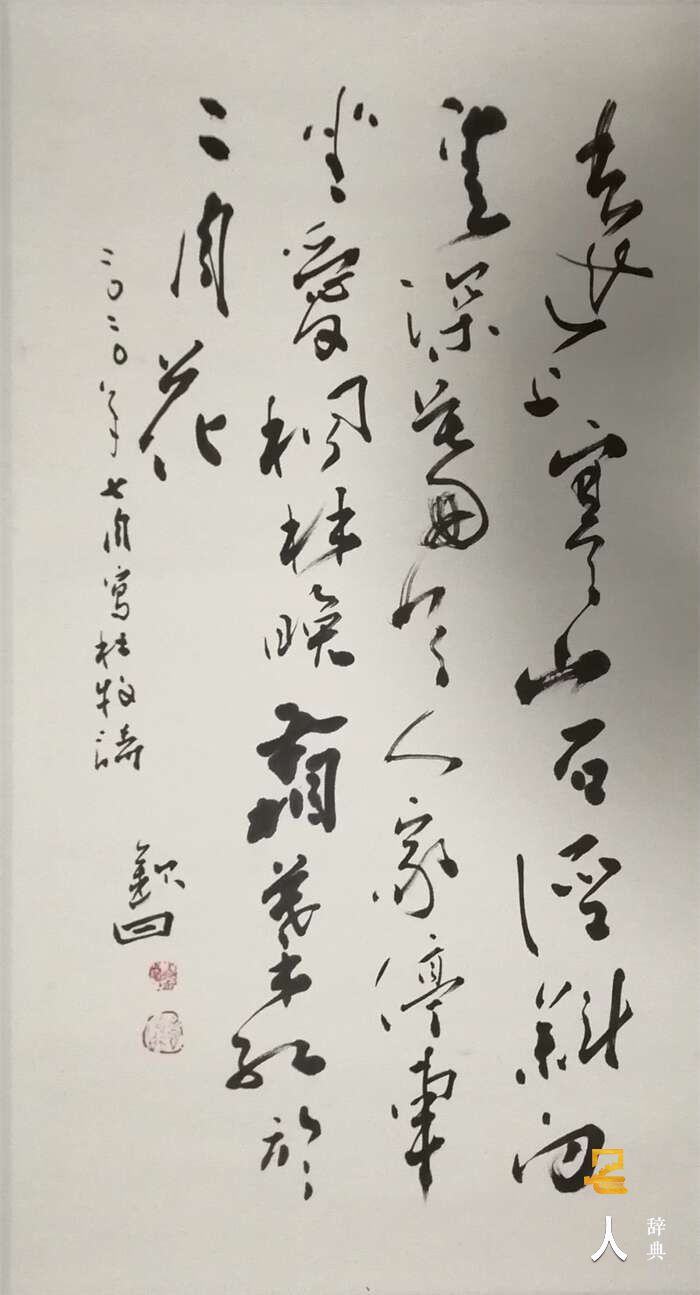 遠上寒山石徑斜白
雲深處有人家停車
坐愛楓林晚霜葉紅於
二月花
二〇二〇年七月寫杜牧詩
名人辞典